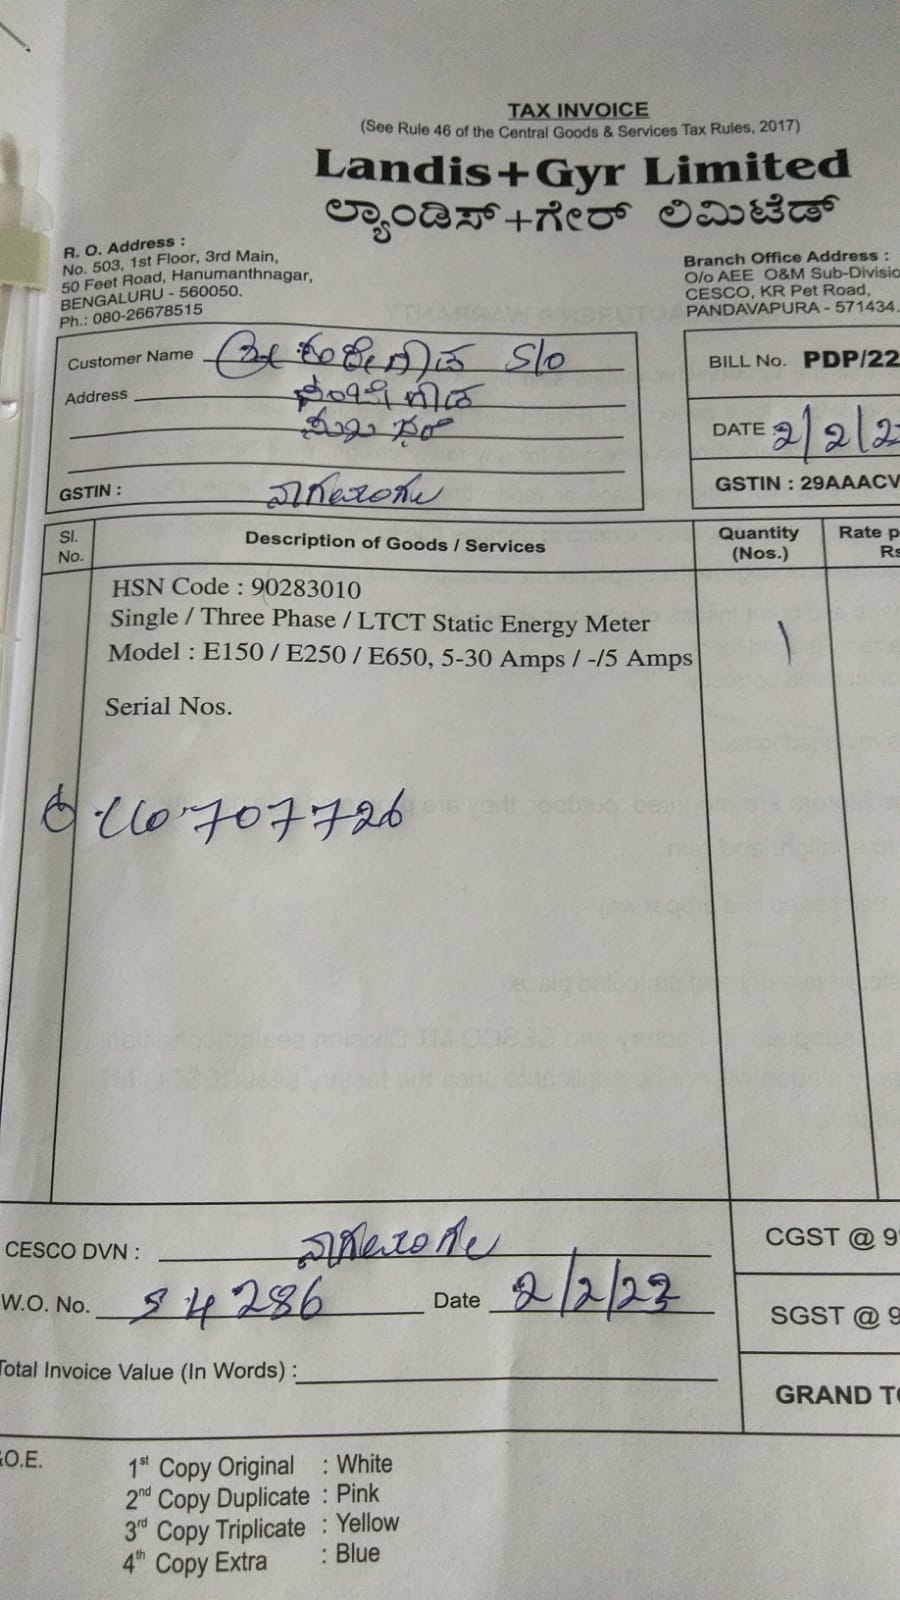 TAX INVOICE
(See Rule 46 of the Central Goods & Services Tax Rules, 2017)
Landis+Gyr Limited
ಲ್ಯಾಂಡಿಸ್+ಗೇರ್ ಲಿಮಿಟೆಡ್
R. O. Address :
No. 503, 1st Floor, 3rd Main,
50 Feet Road, Hanumanthnagar,
BENGALURU - 560050.
Ph.: 080-26678515
Branch Office Address :
O/o AEE O&M Sub-Divisio
CESCO, KR Pet Road,
PANDAVAPURA - 571434.
Customer Name S/o
Address
GSTIN :
BILL No. PDP/22
DATE 2/2/2
GSTIN : 29AAACV
Sl. No.
Description of Goods / Services
Quantity (Nos.)
Rate p
Rs
HSN Code : 90283010
Single / Three Phase / LTCT Static Energy Meter
Model : E150 / E250 / E650, 5-30 Amps / -/5 Amps
1
Serial Nos.
707726
CESCO DVN :
W.O. No. 54286 Date 2/2/23
Total Invoice Value (In Words) :
CGST @ 9
SGST @ 9
GRAND TO
.O.E.
1st Copy Original : White
2nd Copy Duplicate : Pink
3rd Copy Triplicate : Yellow
4th Copy Extra : Blue